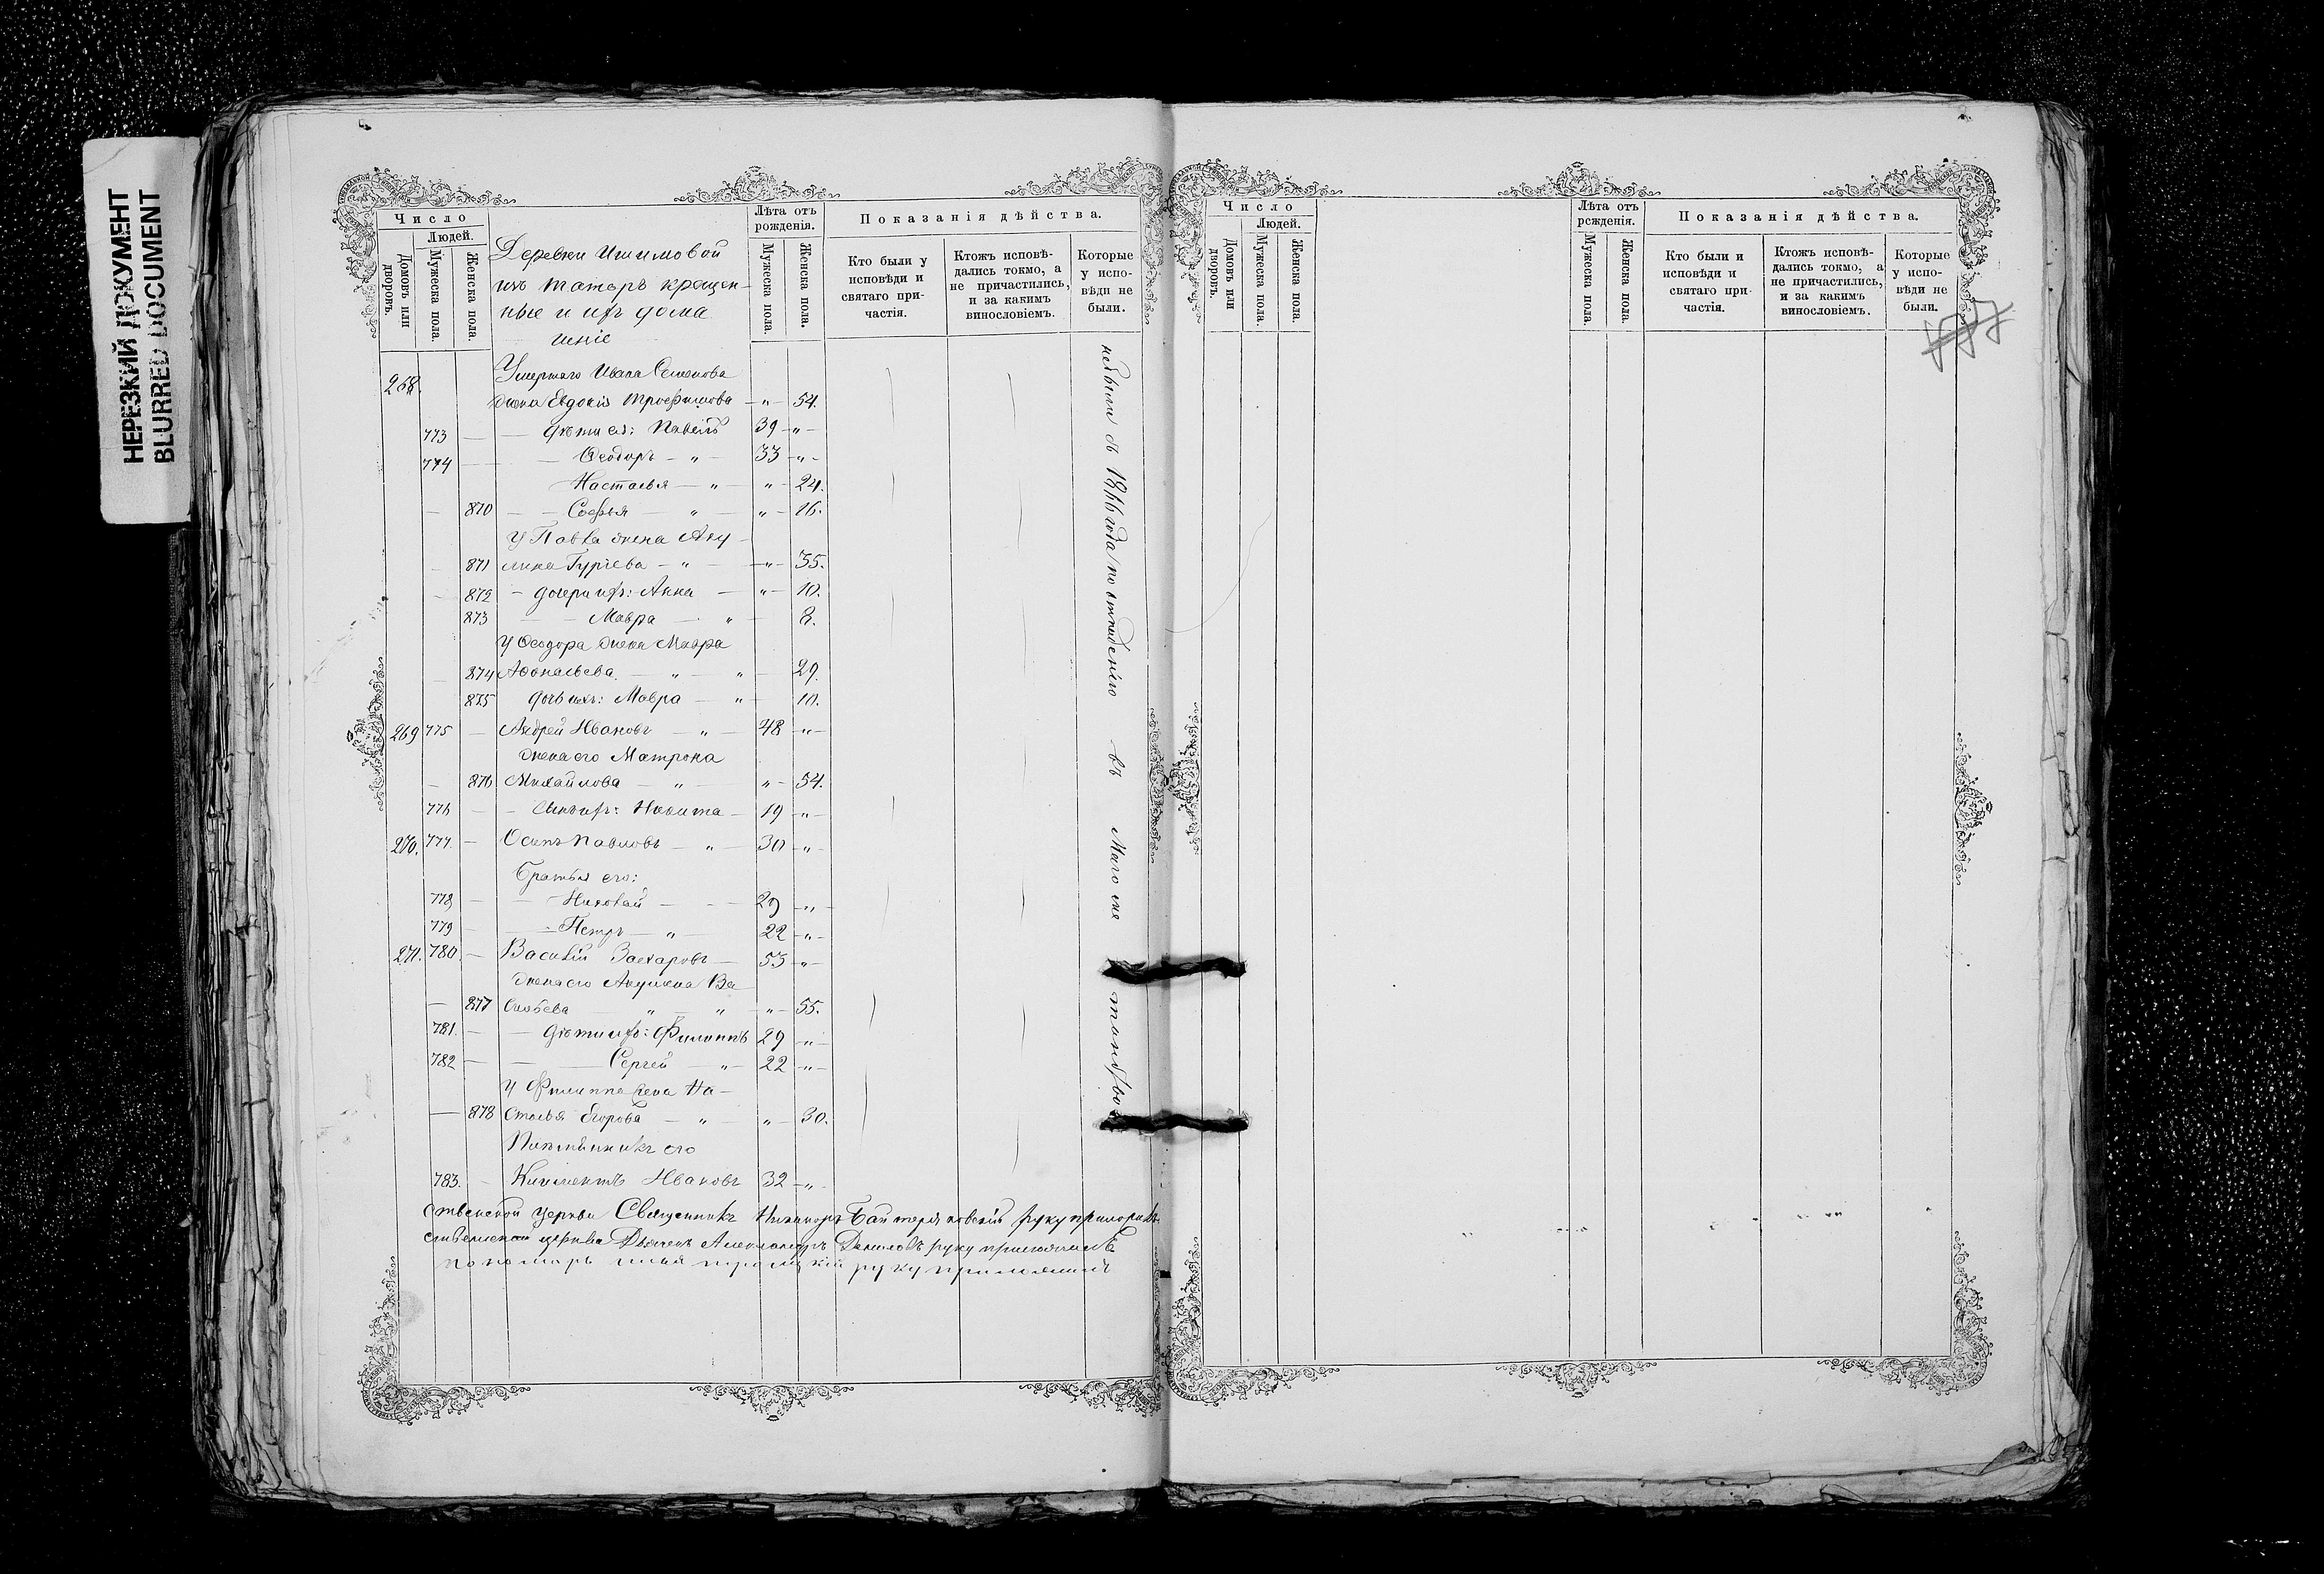 НЕРЕЗКИЙ ДОКУМЕНТ
BLURRED DOCUMENT
Число
Людей.
Домовъ или дворовъ.
Мужеска пола.
Женска пола.
Деревни Ишимовой
изъ татаръ крещен-
ные и ихъ дома
шніе
Лѣта отъ рожденія.
Мужеска пола.
Женска пола.
Показанія дѣйства.
Кто были у исповѣди и святаго причастія.
Ктожъ исповѣдались токмо, а не причастились, и за какимъ винословіемъ.
Которые у исповѣди не были.
268. Умершаго Ивана Семенова
жена Евдокія Трофимова — „ — 54.
773 — — дѣти ея: Павелъ 39 — „ —
774 — — Ѳеодоръ — „ — 33 — „ —
Настасья — „ — „ — 24.
— 870 — — Софья — „ — „ — 16.
У Павла жена Аку-
— 871 лина Гуріева — „ — — „ — 35.
— 872 — дочери ихъ: Анна — „ — 10.
873 — — Мавра — „ — 8.
У Ѳеодора жена Мавра
— 874 Аѳонасьева — „ — „ — 29.
875 дочь ихъ: Мавра — „ — 10.
269 775 — Андрей Ивановъ — „ — 48 — „ —
жена его Матрона
— 876 Михайлова — „ — „ — 54.
776 — — Сынъ ихъ: Никита — 19 — „ —
270. 777. — Осипъ Павловъ — „ — 30 — „ —
Братья его:
778 — — Николай — — — 29 — „ —
779 — — Петръ — „ — 22 — „ —
271. 780. — Василій Захаровъ — 53 — „ —
жена его Акулина Ва
— 877 сильева „ — „ — „ — 55.
781. — — дѣти ихъ: Филиппъ 29 — „ —
782 — — Сергей — „ — 22 — „ —
У Филиппа жена На-
— 878 стасья Егорова — „ — „ — 30.
Племянникъ его
783. — Климентъ Ивановъ 32 — „ —
небыли съ 1866 года по отпаденію въ Магоме
ственской церкви Священникъ Никаноръ руку приложилъ
ственской церкви Дьячекъ Александръ Даниловъ руку приложилъ
пономарь Илья Троицкій руку приложилъ
Число
Людей.
Домовъ или дворовъ.
Мужеска пола.
Женска пола.
Лѣта отъ рожденія.
Мужеска пола.
Женска пола.
Показанія дѣйства.
Кто были и исповѣди и святаго причастія.
Ктожъ исповѣдались токмо, а не причастились, и за какимъ винословіемъ.
Которые у исповѣди не были.